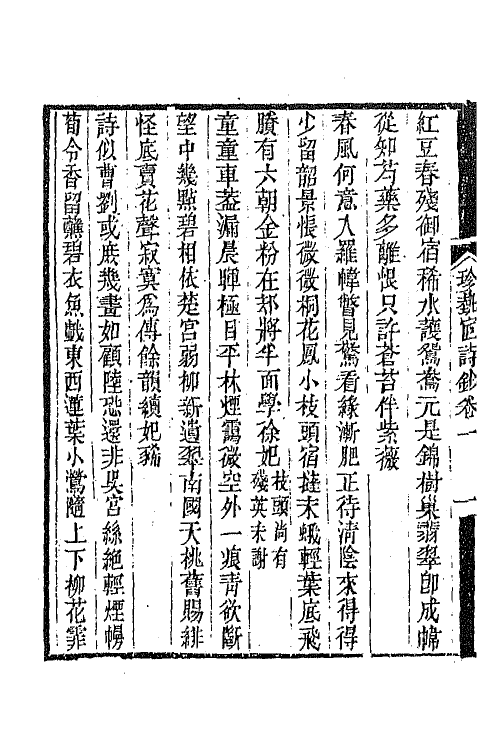 珍埶宧詩鈔卷一
一
紅豆春殘御宿稀水護鴛鴦元是錦樹巢翡翠卽成幃
從知芍藥多離恨只許蒼苔伴紫薇
春風何意入羅幃瞥見驚看綠漸肥正待淸陰來得得
少留韶景悵微微桐花鳳小枝頭宿撻末蛾輕葉底飛
賸有六朝金粉在却將半面學徐妃枝頭尚有
殘英未謝
童童車葢漏晨暉極目平林煙靄微空外一痕靑欲斷
望中幾點碧相依楚宮弱柳新遺翠南國夭桃舊賜緋
怪底賣花聲寂寞爲傳餘韻續妃豨
詩似曹劉或庶幾畫如顧陸恐還非吳宮絲絕輕煙幌
荀令香留蘸碧衣魚戲東西蓮葉小鶯隨上下柳花霏